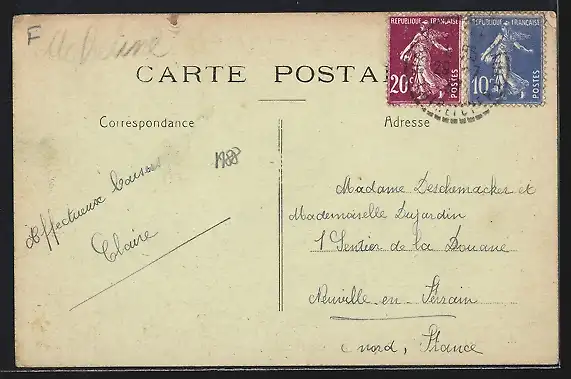 F
CARTE POSTA
REPUBLIQUE FRANÇAISE
20c
POSTES
REPUBLIQUE FRANÇAISE
10c
POSTES
Correspondance
Affectueux baisers
Claire
Adresse
Madame Deschemacker et
Mademoiselle Dujardin
1 Sentier de la Douane
Neuville-en-Ferrain
Nord, France